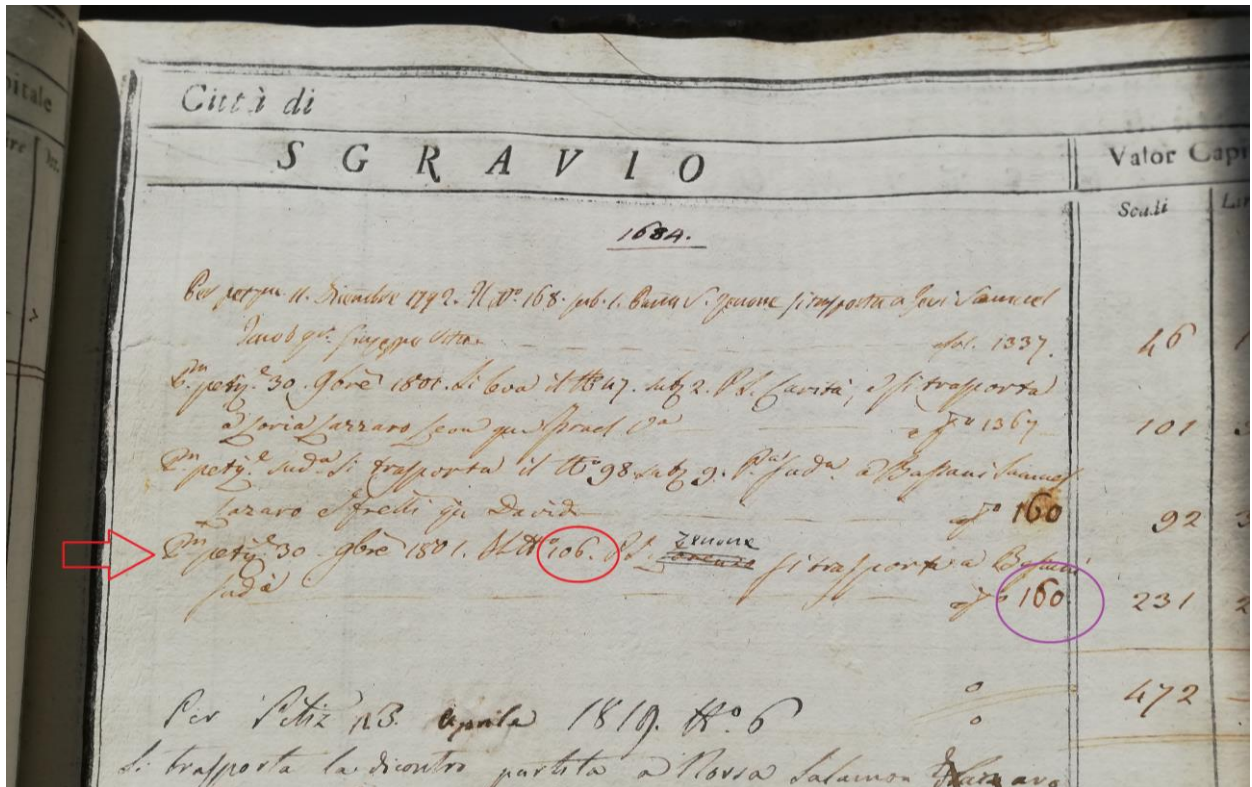 pitale
Città di
SGRAVIO
Valor Capi
Scudi Lir
1684.
Per petizne 11. Dicembre 1792. Il No. 168. sub. 1. Parta S. Zenone si trasporta a Levi Samuel
Jacob qm. Giuseppe Vita fol. 1337. 46 1
petize 30. 9bre 1801. Si leva il No 47. sub 2. P. S. Carità, e si trasporta
a Loria Lazzaro Leon qm Israel fo 1367 101 3
petize sudda. Si trasporta il No 98 sub 9. Pta sudda a Bassani Samuel
Lazaro e frelli qm David fo 160 92 3
petize 30 9bre 1801. Il No 106. P. S. Zenone si trasporta a Bassani
sudo fo 160 231 2
472
Per Petiz 13 Aprile 1819. No. 6
Si trasporta la dicontro partita a Norsa Salamon